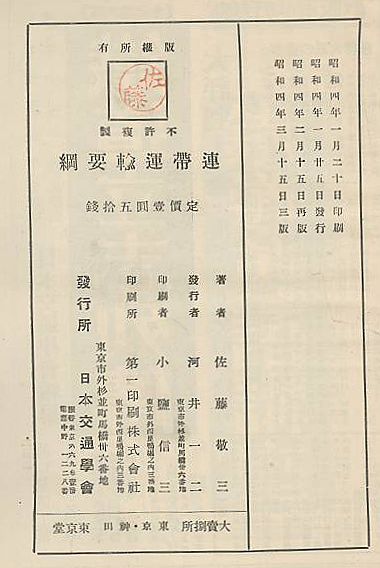 昭和四年一月二十日印刷
昭和四年一月廿五日發行
昭和四年二月十五日再版
昭和四年三月十五日三版
版權所有
佐藤
不許複製
連帶運輸要綱
定價壹圓五拾錢
著者 佐藤敬三
發行者 河井一二
東京市外杉並町馬橋卅六番地
印刷者 小鹽信三
東京市外西巢鴨堀之内三番地
印刷所 第一印刷株式會社
東京市外西巢鴨堀之内三番地
東京市外杉並町馬橋卅六番地
發行所 日本交通學會
電話中野一二二八番
大賣捌所 東京・神田 東京堂